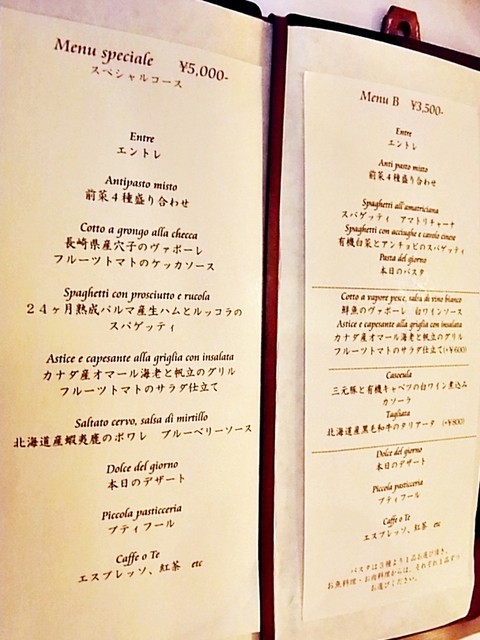 Menu speciale ¥5,000-
スペシャルコース
Entre
エントレ
Antipasto misto
前菜４種盛り合わせ
Cotto a grongo alla checca
長崎県産穴子のヴァポーレ
フルーツトマトのケッカソース
Spaghetti con prosciutto e rucola
２４ヶ月熟成パルマ産生ハムとルッコラの
スパゲッティ
Astice e capesante alla griglia con insalata
カナダ産オマール海老と帆立のグリル
フルーツトマトのサラダ仕立て
Saltato cervo, salsa di mirtillo
北海道産蝦夷鹿のポワレ　ブルーベリーソース
Dolce del giorno
本日のデザート
Piccola pasticceria
プティフール
Caffe o Te
エスプレッソ、紅茶　etc
Menu B ¥3,500-
Entre
エントレ
Anti pasto misto
前菜４種盛り合わせ
Spaghetti all'amatriciana
スパゲッティ　アマトリチャーナ
Spaghetti con acciughe e cavolo cinese
有機白菜とアンチョビのスパゲッティ
Pasta del giorno
本日のパスタ
Cotto a vapore pesce, salsa di vino bianco
鮮魚のヴァポーレ　白ワインソース
Astice e capesante alla griglia con insalata
カナダ産オマール海老と帆立のグリル
フルーツトマトのサラダ仕立て(+¥600)
Casoeula
三元豚と有機キャベツの白ワイン煮込み
カソーラ
Tagliata
北海道産黒毛和牛のタリアータ　(+¥800)
Dolce del giorno
本日のデザート
Piccola pasticceria
プティフール
Caffe o Te
エスプレッソ、紅茶　etc
パスタは３種より１品お選び頂き、
お魚料理・お肉料理からは、それぞれ１品ずつ
お選びください。